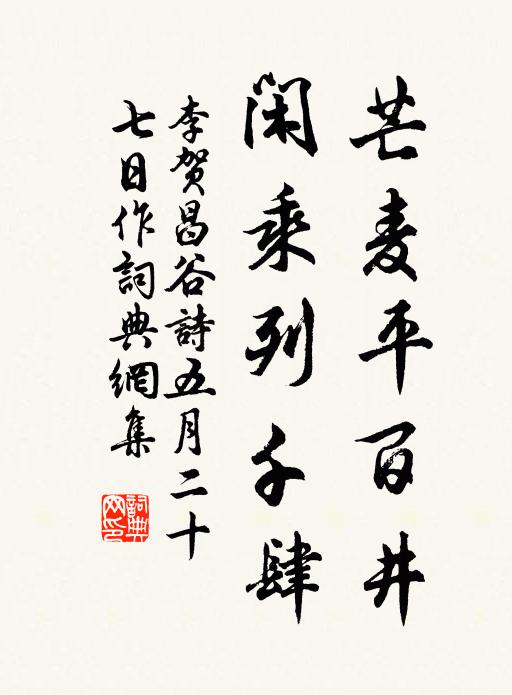 芒麦平百井
闲乘列千肆
李贺昌谷詩五月二十
七日作詞典網集
詞典网印